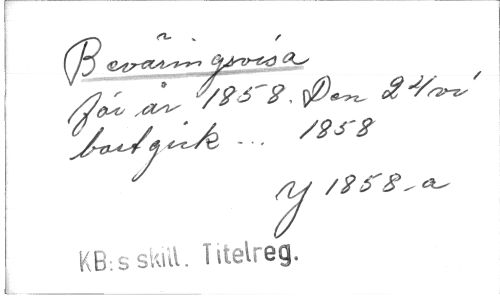 Beväringsvisa
för år 1858. Den 24 vi
bortgick ... 1858
Y 1858-a
KB:s skill. Titelreg.